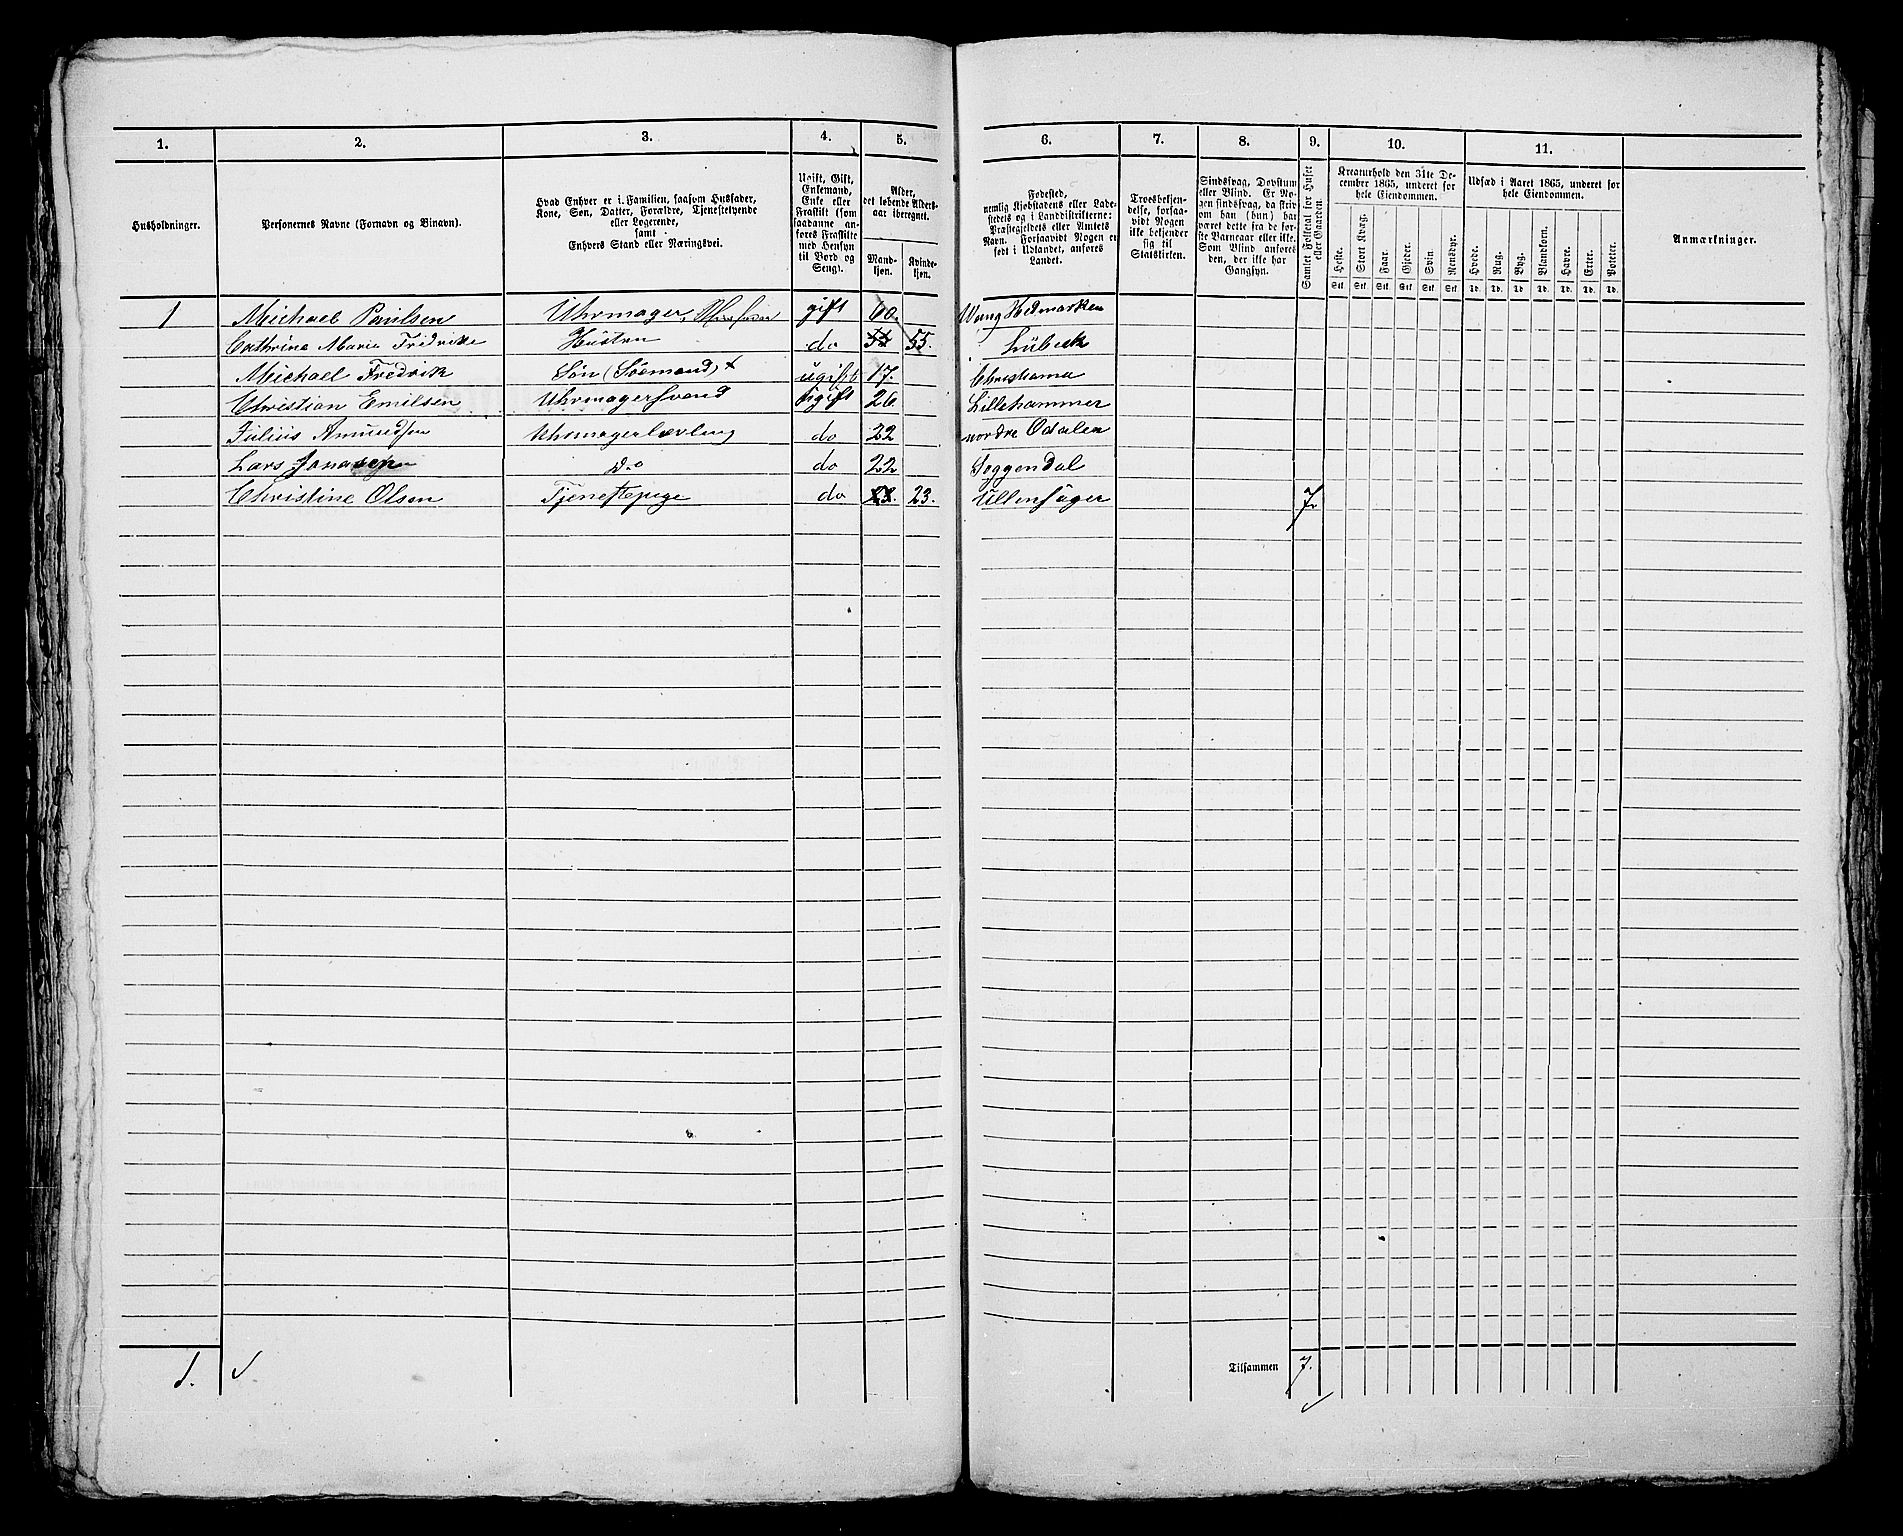 1. 2. 3. 4. 5. 6. 7. 8. 9. 10. 11.
Husholdninger.
Personernes Navne (Fornavn og Binavn).
Hvad Enhver er i Familien, saasom Husfader,
Kone, Søn, Datter, Forældre, Tjenestetyende
eller Logerende,
samt
Enhvers Stand eller Næringsvei.
Ugift, Gift,
Enkemand,
Enke eller
Fraskilt (som
saadanne an-
føres Fraskilte
med Hensyn
til Bord og
Seng).
Alder,
det løbende Alders-
aar iberegnet.
Mand-
kjøn.
Kvinde-
kjøn.
Fødested,
nemlig Kjøbstadens eller Lade-
stedets og i Landdistrikterne:
Præstegjeldets eller Amtets
Navn. Forsaavidt Nogen er
født i Udlandet, anføres
Landet.
Troesbekjen-
delse, forsaa-
vidt Nogen
ikke bekjender
sig til
Statskirken.
Sindssvag, Døvstum
eller Blind. Er No-
gen sindssvag, da skriv
om han (hun) har
været dette fra de før-
ste Barneaar eller ikke.
Som Blind anføres
den, der ikke har
Gangsyn.
Samlet Folketal for Huset
eller Gaarden.
Kreaturhold den 31te De-
cember 1865, underet for
hele Eiendommen.
Heste. Stort Kvæg. Faar. Gjeder. Svin Rensdyr.
Stk. Stk. Stk. Stk. Stk. Stk.
Udsæd i Aaret 1865, underet for
hele Eiendommen.
Hvede. Rug. Byg. Blandkorn. Havre. Erter. Poteter.
Td. Td. Td. Td. Td. Td. Td.
Anmærkninger.
1 Michael Paulsen Uhrmager, Husfader gift 60. Wang Hedmarken
Cathrine Marie Fredrike Hustru do 55. Lübeck
Michael Fredrik Søn (Sømand) + ugift 17. Christiania
Christian Emilsen Uhrmagersvend ugift 26 Lillehammer
Julius Amundsen Uhrmagerlærling do 22 nordre Odalen
Lars Jonasen Do do 22. Soggendal
Christine Olsen Tjenestepige do 23. 23. Ullensager 7.
1.
Tilsammen 7.